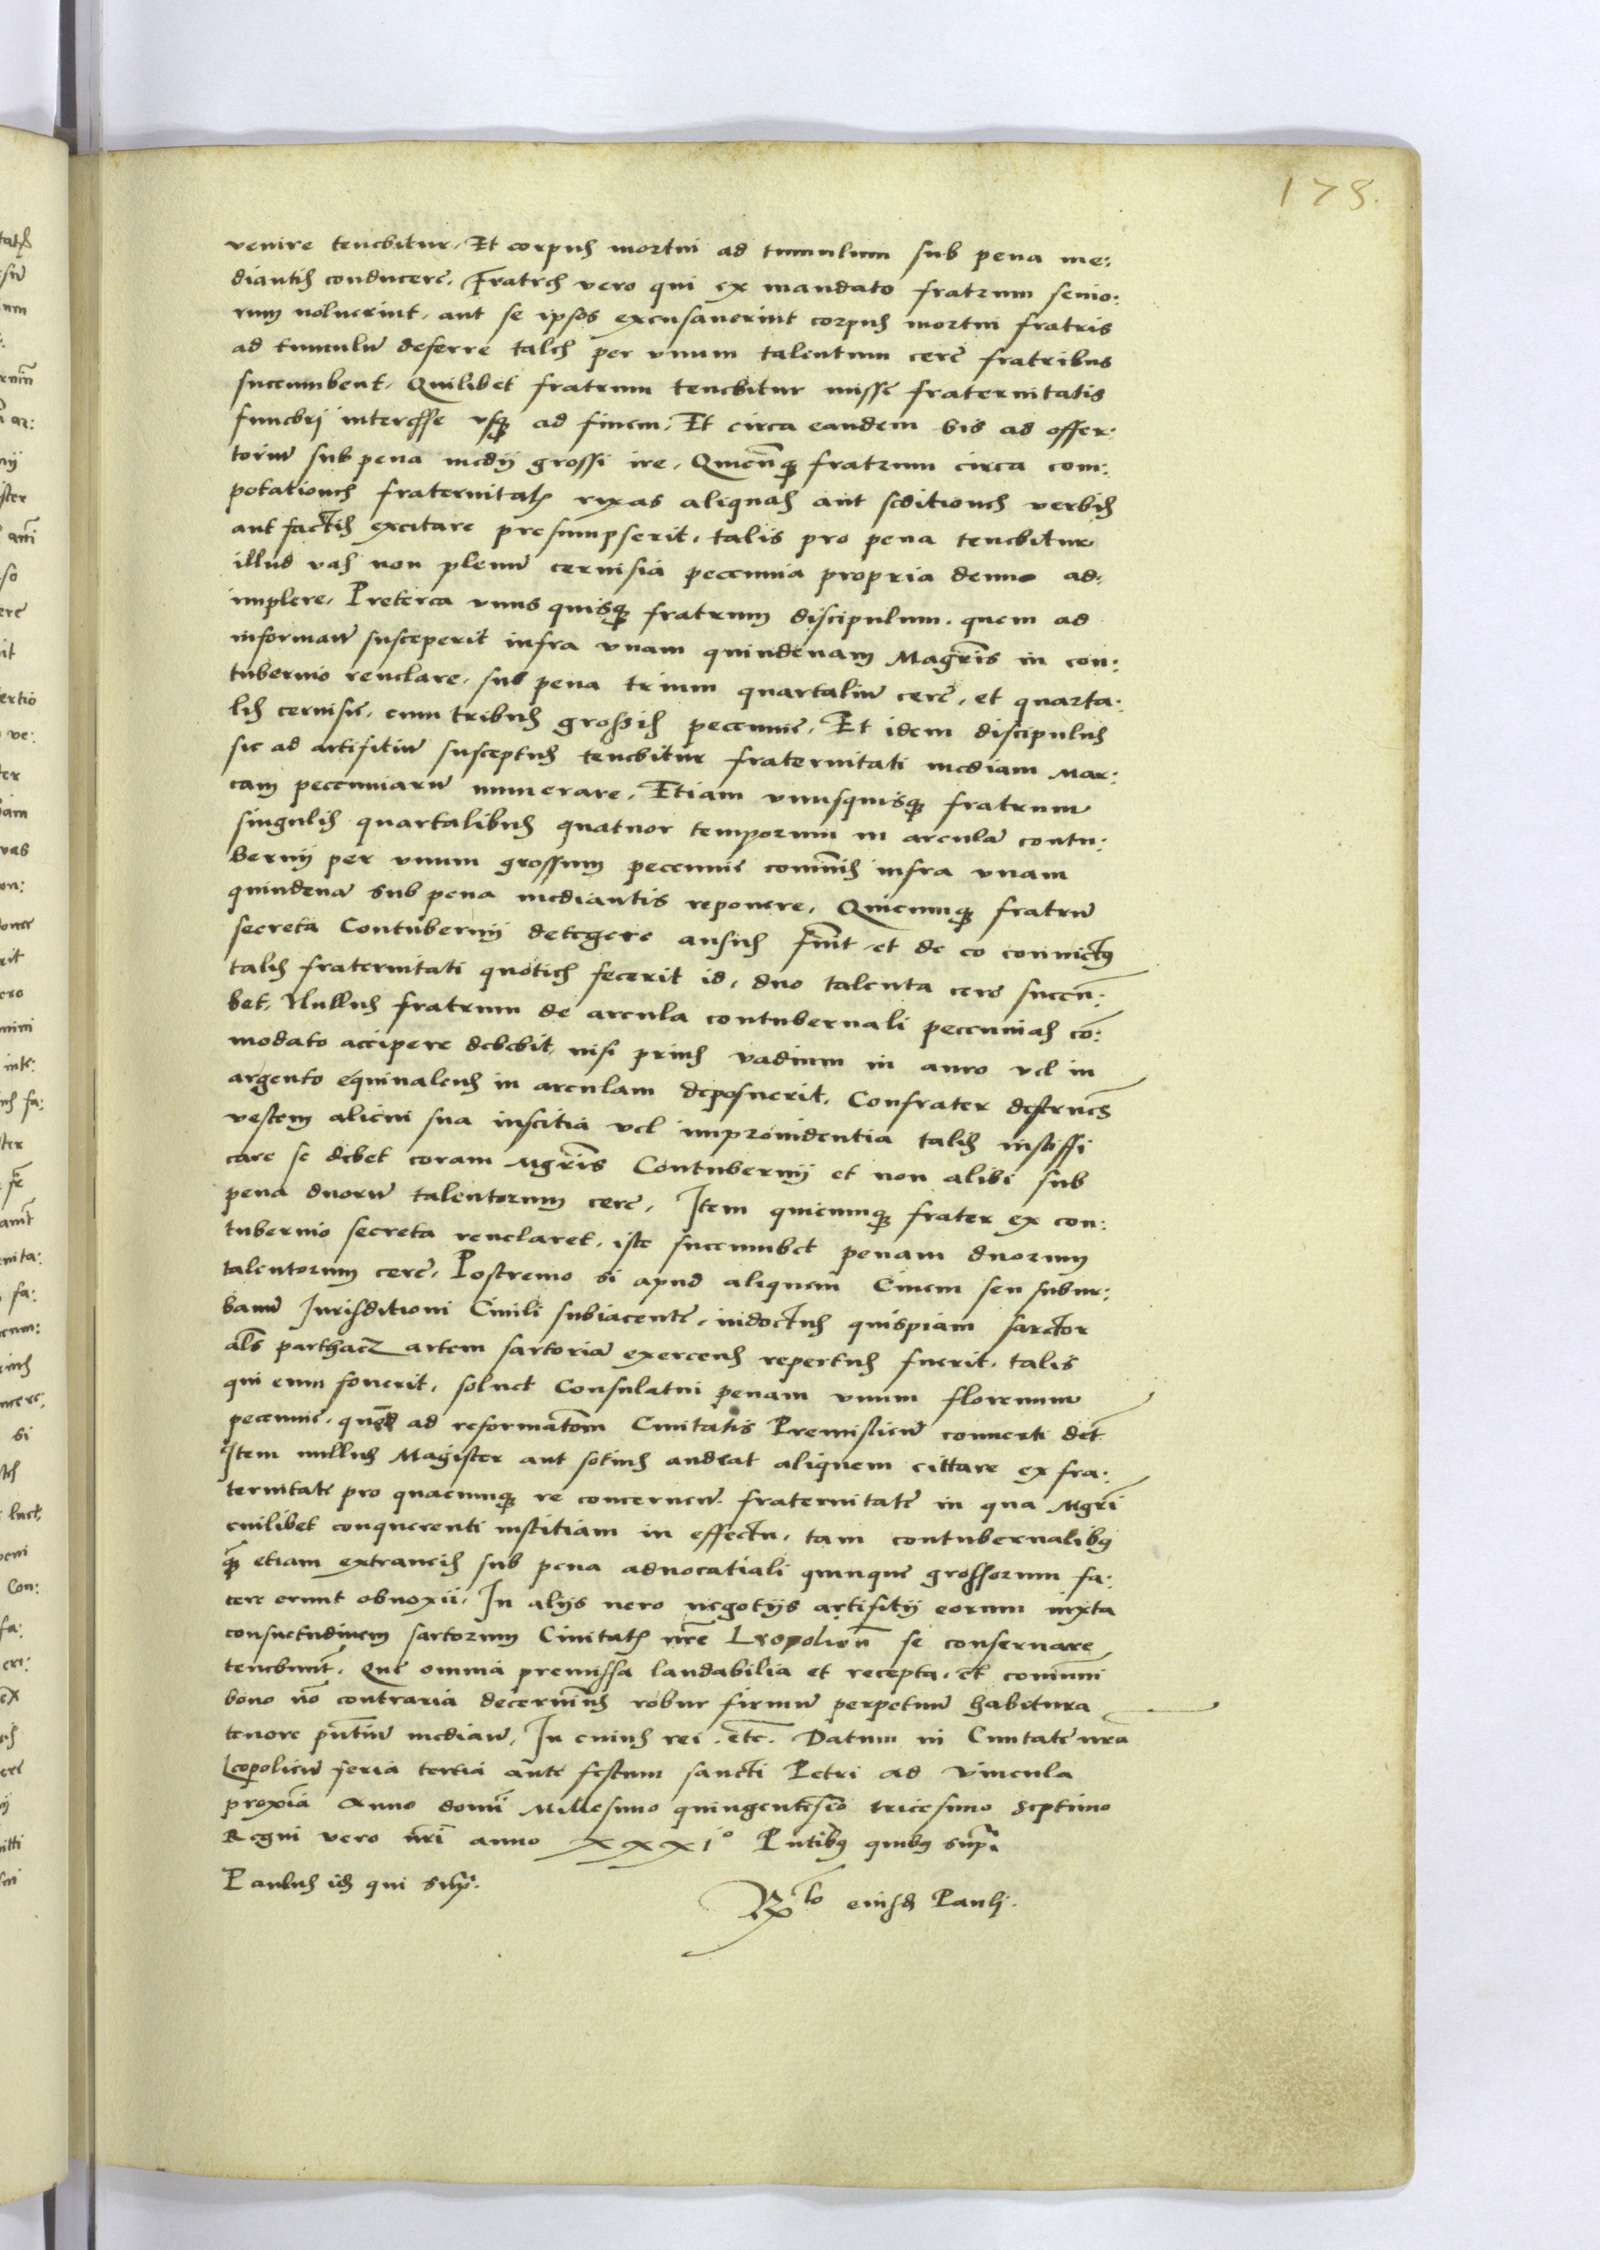 178.
venire tenebitur, Et corpus mortui ad tumulum sub pena me:
diantis conducere, Fratres vero qui ex mandato fratrum senio:
rum noluerint, aut se ipsos excusauerint corpus mortui fratris
ad tumulū deferre tales per vnum talentum cere fratribus
succumbent, Quilibet fratrum tenebitur misse fraternitatis
funebrj interesse vsqȝ ad finem, Et circa eandem bis ad offer:
toriū sub pena medij grossi ire, Quicūqȝ fratrum circa com:
potationes fraternitatis rixas aliquas aut seditiones verbis
aut factis excitare presumpserit, talis pro pena tenebitur
illud vas non plenū ceruisia peccunia propria denuo ad:
implere, Preterea vnus quisqȝ fratrum discipulum, quem ad
informanᷤ susceperit infra vnam quindenam Magrīs in con:
tubernio reuelare, sub pena trium quartaliū cere, et quarta:
lis ceruisie, cum tribus grossis peccunie, Et idem discipulus
sic ad artifitiū susceptus tenebitur fraternitati mediam Mar:
cam peccuniarū numerare, Etiam vnusquisqȝ fratrum
singulis quartalibus quatuor temporum in arcula contu:
bernij per vnum grossum peccunie comūis infra vnam
quindenā sub pena mediantis reponere, Quicumqȝ fratrū
secreta Contubernij detegere ausus fūit et de eo conuictꝰ
talis fraternitati quoties fecerit id, duo talenta cere succū:
bet, Nullus fratrum de arcula contubernali peccunias cō:
modato accipere debebit, nisi prius vadium in auro vel in
argento equiualens in arculam deposuerit, Confrater destruēs
vestem alicui sua inscitia vel improuidentia talis iustiffi
care se debet coram Mgrīs Contubernij et non alibi sub
pena duorū talentorum cere, Item quicumqȝ frater ex con:
tubernio secreta reuelaret, iste succumbet penam duorum
talentorum cere, Postremo si apud aliquem Ciuem seu subur:
banū Jurisditioni Ciuili subiacentē, indoctus quispiam sarctor
als parthacz artem sartoriā exercens repertus fuerit, talis
qui eum fouerit, soluet Consulatui penam vnum florenum
peccunie, quod ad reformatōm Ciuitatis Premislien̄ conuerti det̄
Item nullus Magister aut sotius audeat aliquem cittare ex fra:
ternitate pro quacumqȝ re concernen̄ fraternitatē in qua Mgrī
cuilibet conquerenti iustitiam in effectu, tam contubernalibꝰ
qȝ etiam extraneis sub pena aduocatiali quinque grossorum fa:
cere erunt obnoxii, In alijs vero negotijs artifitij eorum iuxta
consuetudinem sartorum Ciuitatis nr̄e Leopolien̄ se conseruare
tenebunt̄, Que omnia premissa laudabilia et recepta, et comūni
bono nō contraria decernimus robur firmū perpetuū habitura
tenore pn̄tiū median̄, In cuius rei, etc̄. Datum in Ciuitate nr̄a
Leopolien̄ feria tertia ante festum sancti Petri ad Vincula
proxīa Anno domī Millesimo quingentesīo tricesimo Septimo
Regni vero nr̄i anno XXXIº Pn̄tibꝰ quibꝰ supª.
Paulus id̄ qui supª.
Rlō eiusd̄ Paulj.